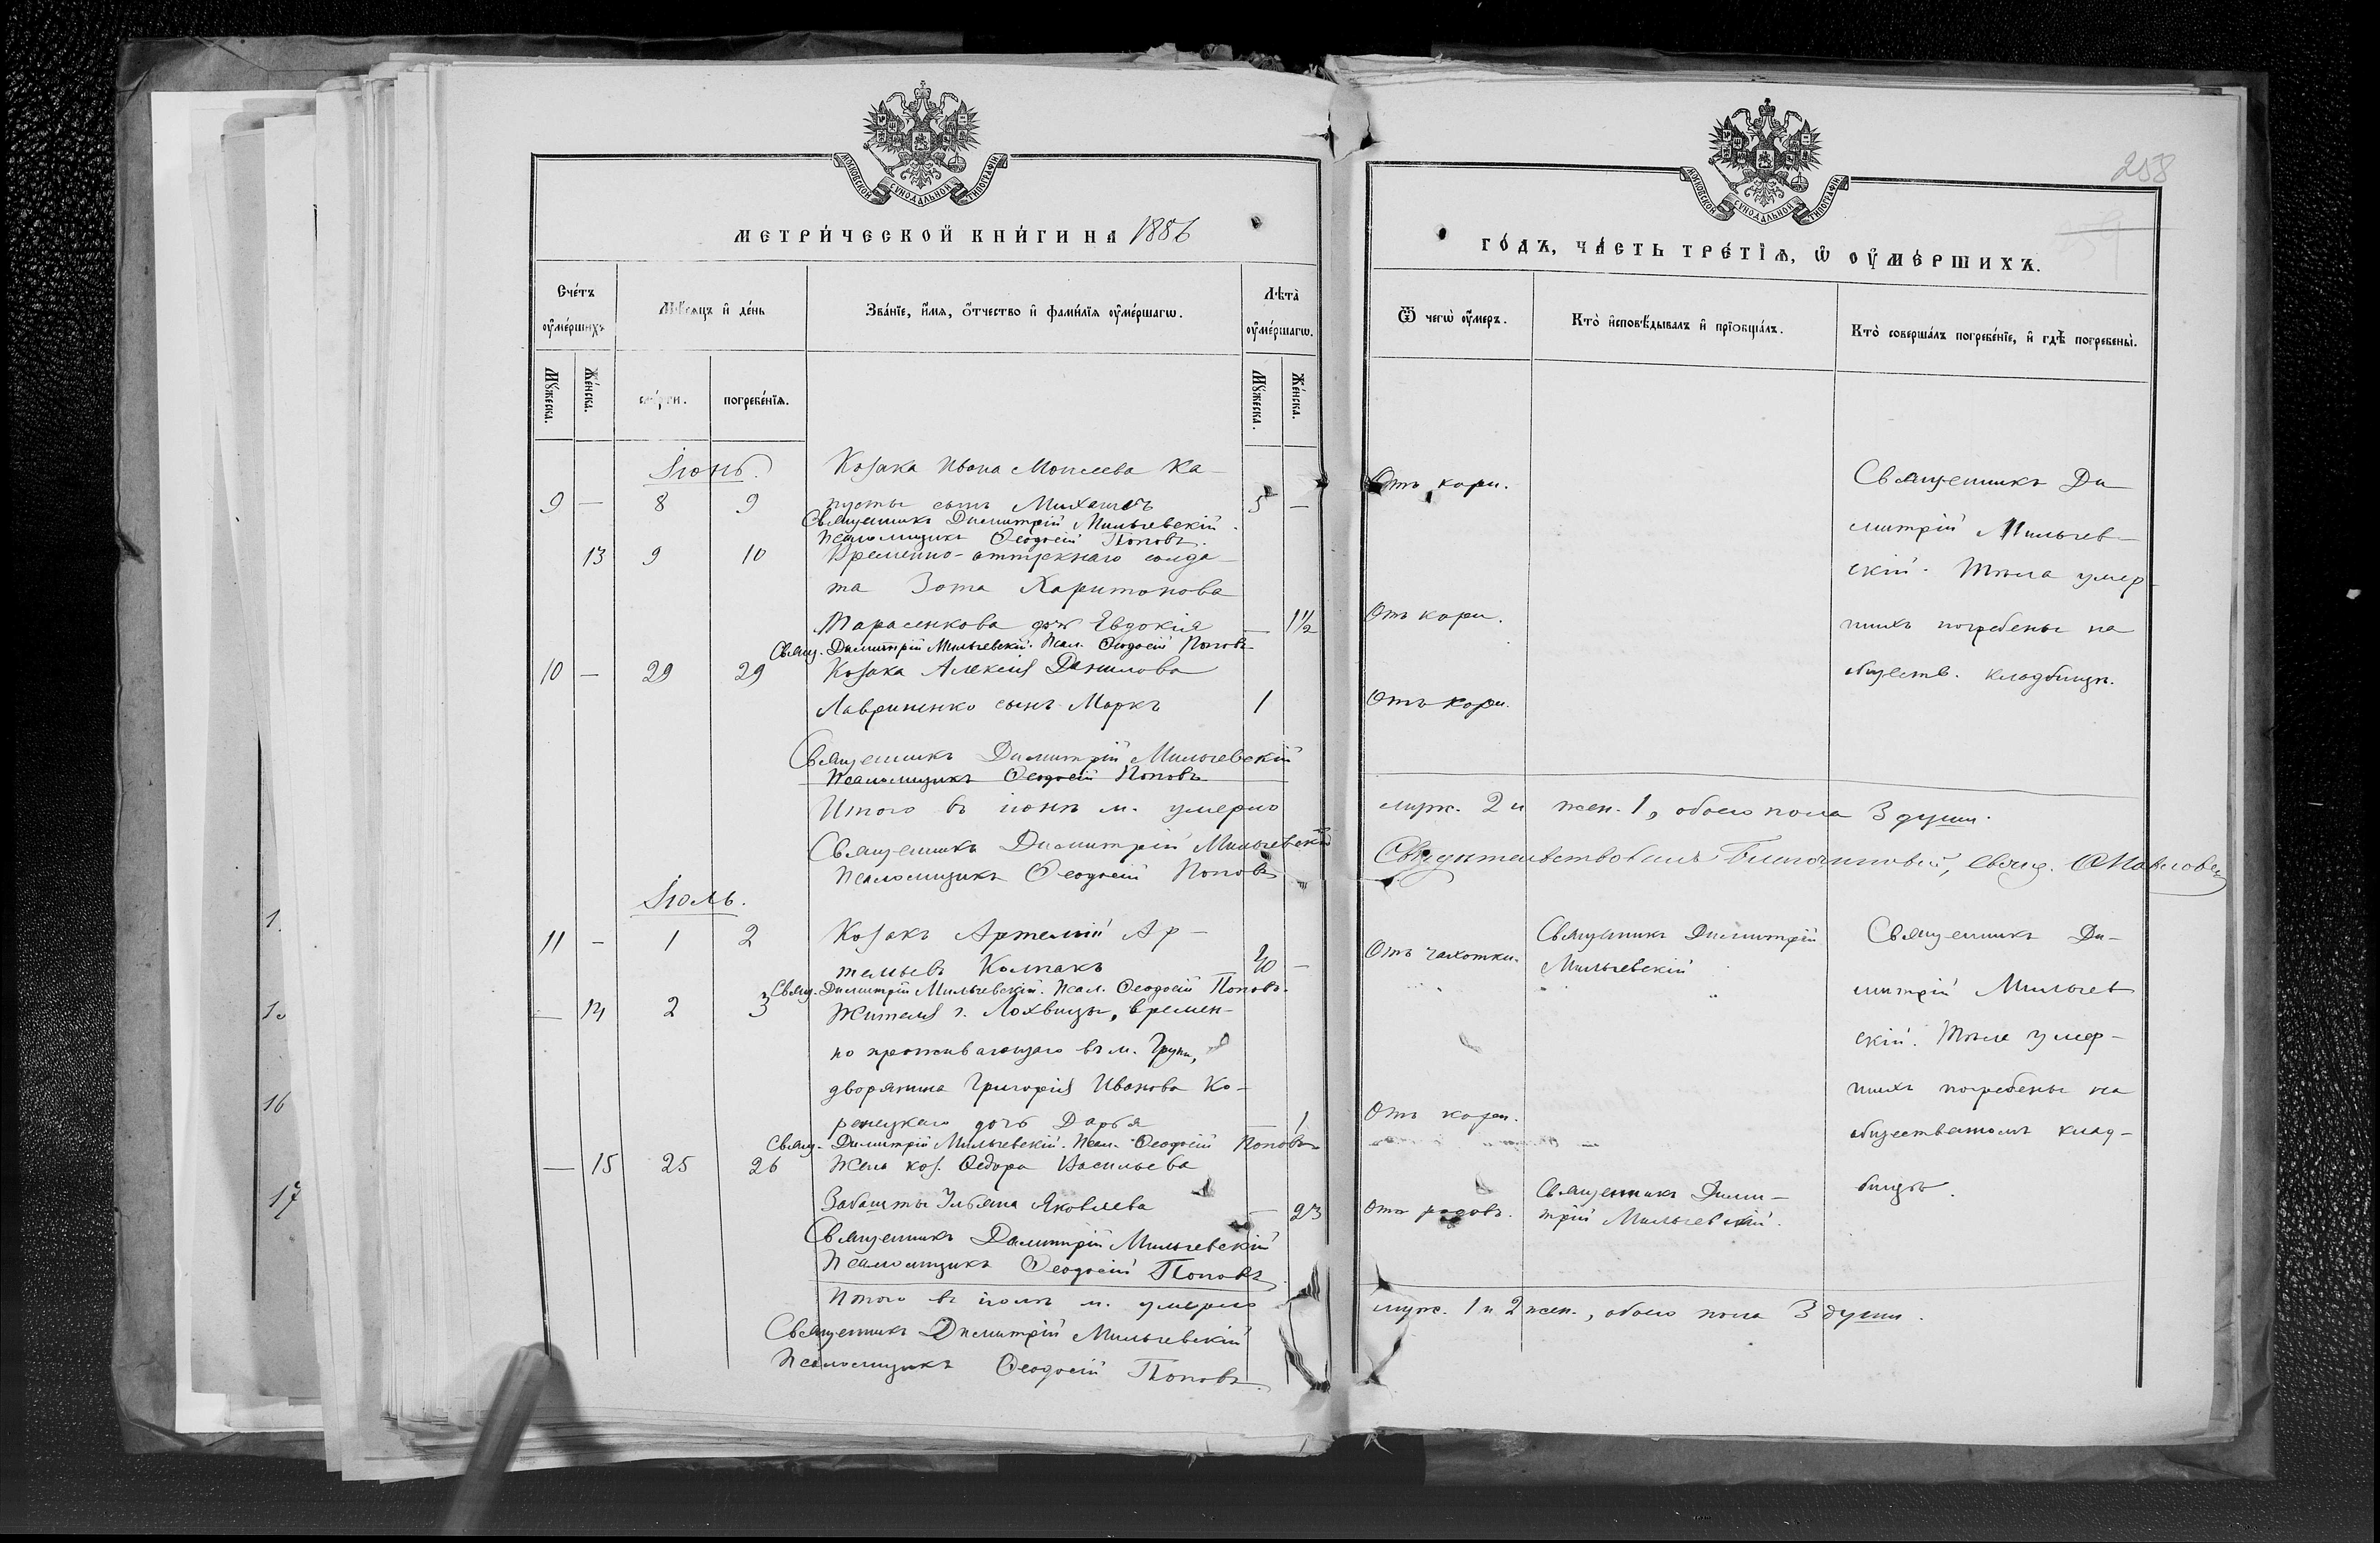 МОСКОВСКОЙ СѴНОДАЛЬНОЙ ТИПОГРАФІИ
МЕТРИ́ЧЕСКОЙ КНИ́ГИ НА 1886
Сче́тъ ᲂу҆ме́ршихъ
Мѣ́сяцъ и҆ де́нь
Зва́нїе, и҆́мя, ѻ҆́тчество и҆ фами́лїя ᲂу҆ме́ршагѡ.
Лѣта̀ ᲂу҆ме́ршагѡ.
Мꙋ́жеска.
Же́нска.
сме́рти.
погребе́нїя.
Мꙋ́жеска.
Же́нска.
Іюнь.
Козака Ивана Моисеева Ка-
9 — 8 9 пусты сынъ Михаилъ 5 —
Священникъ Димитрій Мильчевскій.
Псаломщикъ Ѳеодосій Поповъ.
13 9 10 Временно-отпускнаго солда-
та Зота Харитонова
Тарасенкова дочь Евдокія — 1½
Свящ. Димитрій Мильчевскій. Псал. Ѳеодосій Поповъ
10 — 29 29 Козака Алексія Данилова
Лавриненко сынъ Маркъ 1
Священникъ Димитрій Мильчевскій
Псаломщикъ Ѳеодосій Поповъ
Итого въ іюнѣ м. умерло
Священникъ Димитрій Мильчевскій
Псаломщикъ Ѳеодосій Поповъ
Іюль.
11 — 1 2 Козакъ Артемій Ар-
темьевъ Колпакъ 40 —
Свящ. Димитрій Мильчевскій. Псал. Ѳеодосій Поповъ.
— 14 2 3 Жителя г. Лохвицы, времен-
но проживающаго въ м. Груни,
дворянина Григорія Иванова Ко-
рецкаго дочь Дарья 1
Свящ. Димитрій Мильчевскій. Псал. Ѳеодосій Поповъ
— 15 25 26 Жена коз. Ѳедора Васильева
Забашты Ульяна Яковлева — 23
Священникъ Димитрій Мильчевскій
Псаломщикъ Ѳеодосій Поповъ
Итого въ іюлѣ м. умерло
Священникъ Димитрій Мильчевскій
Псаломщикъ Ѳеодосій Поповъ.
258
МОСКОВСКОЙ СѴНОДАЛЬНОЙ ТИПОГРАФІИ
ГО́ДЪ, ЧА́СТЬ ТРЕ́ТІѦ, Ѡ҆ ОУ҆МЕ́РШИХЪ.
Ѿ чегѡ̀ ᲂу҆́меръ.
Кто̀ и҆сповѣ́дывалъ и҆ прїобща́лъ.
Кто̀ соверша́лъ погребе́нїе, и҆ гдѣ̀ погребены̀.
Отъ кори.
Священникъ Ди-
митрій Мильчев-
скій. Тѣла умер-
Отъ кори.
шихъ погребены на
обществ. кладбищѣ.
Отъ кори.
муж. 2 и жен. 1, обоего пола 3 души.
Свидѣтельствовалъ Благочинный, свящ.
Отъ чахотки.
Священникъ Димитрій
Мильчевскій
Священникъ Ди-
митрій Мильчев
скій. Тѣла умер-
шихъ погребены на
Отъ кори.
общественномъ клад-
бищѣ.
Отъ родовъ.
Священникъ Дими-
трій Мильчевскій.
муж. 1 и 2 жен., обоего пола 3 души.
1.
16
17